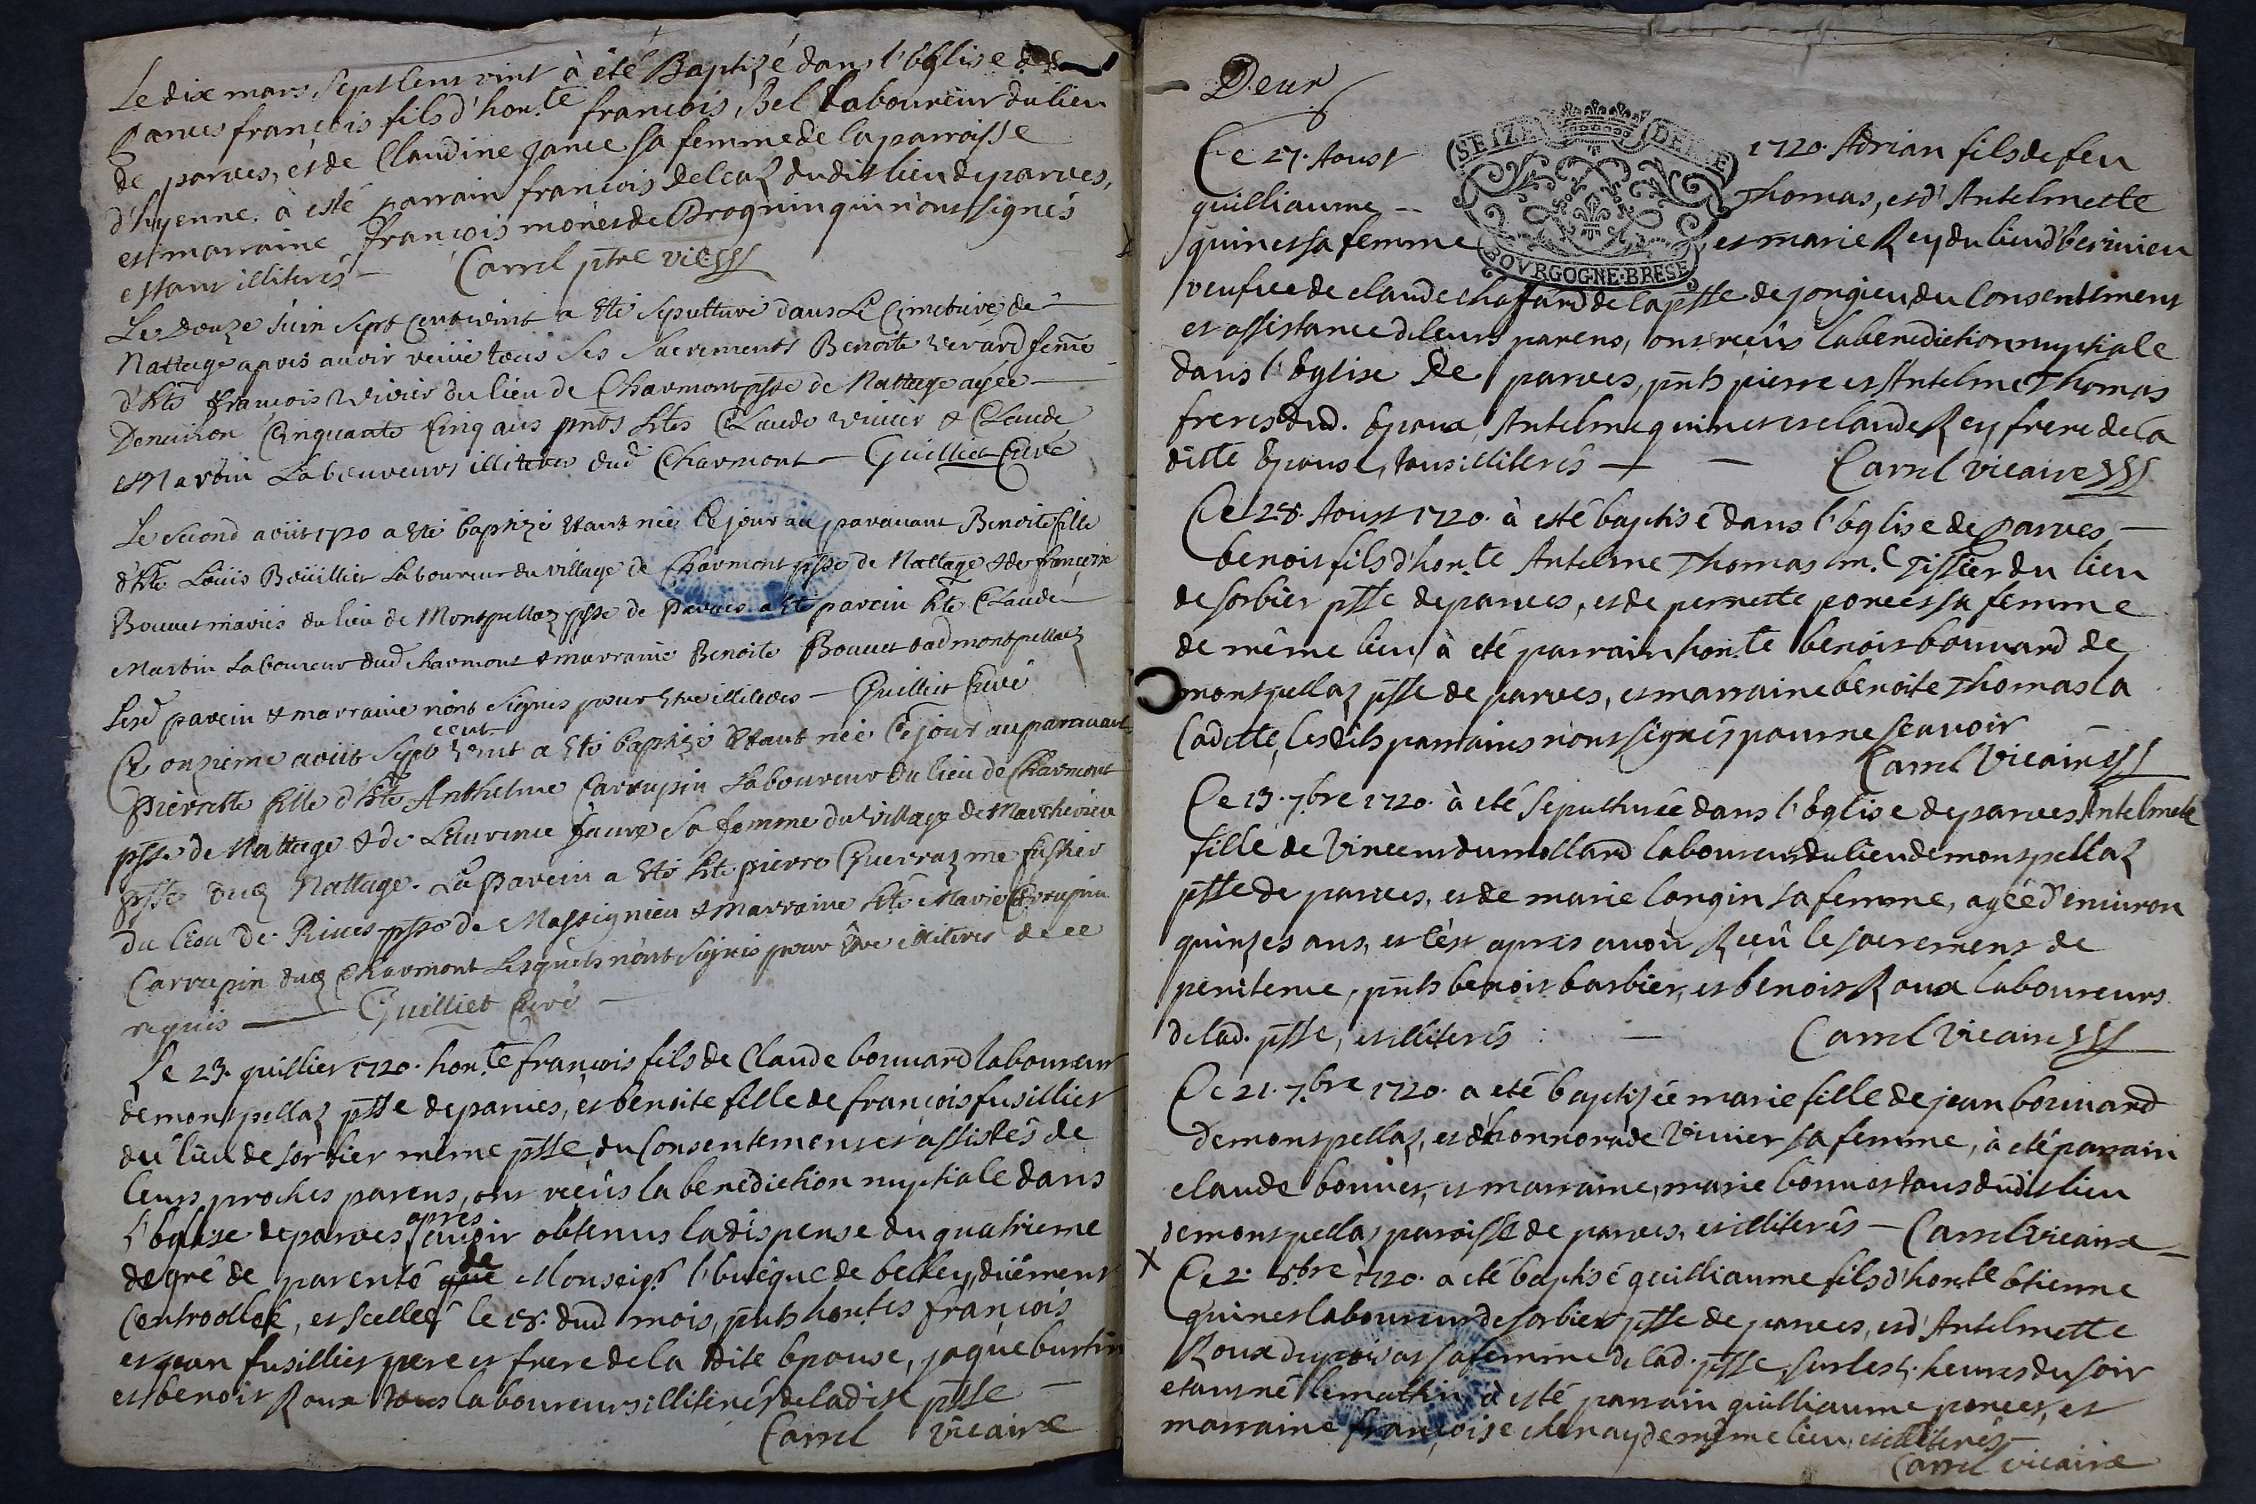 Le dix mars sept cens vint à été Baptizé dans l'Eglise de
parves françois fils d'hon.te françois Bel laboureur du lieu
de parves, et de Claudine Jance sa femme de la parroisse
d'hyenne. à esté parrain françois Delcaz dudit lieu de parves,
et marraine françois de Brognin qui n'ont signés
estans illiterés — Carrel ptre vic
Le douze Juin sept cent vint a Eté sepulturé dans Le Cimetiere de
Nattage apres avoir reçüe tous ses sacrements Benoite verard feme
d'hte François Vivier du lieu de Charmont psse de Nattage agée
Denviron Cinquante Cinq ans pnts htes Claude vivier & Claude
Martin Laboureurs illiteres dud Charmont — Guilliet Curé
Le second aoüt 1720 a Eté baptizé Etant née le jour au paravant Benoite fille
d'hte Loüis Boüillier Laboureur du village de Charmont psse de Nattage & de
Bouvet mariés du lieu de Montpellaz psse de Parves a Eté parein hte Claude
Martin Laboureur dud Charmont & marraine Benoite Bouvet dud montpellaz
Lesd parein & marraine n'ont signés pour Etre illiteres — Guilliet Curé
Ce onzieme aoüt Sept cent vint a Eté baptizé Etant née le jour auparavant
Pierrette fille d'hte Anthelme Carrupin Laboureur du lieu de Charmont
psse de Nattage & de Laurence faure sa femme du village de
psse dud Nattage. Le Parein a Eté hte pierre Guerraz me fustier
du lieu de Rives psse de Massignieu & Marraine hte Marie Carrupin
Carrupin dud Charmont Lesquels n'ont signés pour Etre illiteres de ce
requis — Guilliet Curé
Le 23. juillier 1720. hon.te françois fils de Claude bouvard laboureur
de montpellaz psse de parves, et benoite fille de françois fusillier
du lieu de sorbier même psse, du Consentement et assistés de
leurs proches parens, ont reçûs la benediction nuptiale dans
l'Eglise de parves après avoir obtenus la dispense du quatrieme
degré de parenté de Monseigr l'Evêque de belley, düement
Controollée, et scellée le 18. dud mois, pnts hontes françois
et jean fusillier pere et frere de la dite Epouse, jaque burtin
et benoit Roux tous laboureurs illiterés de ladite psse
Carrel Vicaire
Deux
SEIZE DENIE
BOVRGOGNE·BRESE
Ce 27. Aoust 1720. Adrian fils de feu
guilliaume Thomas, et d'Antelmette
quinet sa femme et marie Rey du lieu
veufve de claude chaffard de la psse de jongieu, du Consentement
et assistance de leurs parens, ont reçûs la benediction nuptiale
dans l'Eglise De parves, pnts pierre et Antelme Thomas
freres dud. Epoux, Antelme quinet et claude Rey frere de la
ditte Epouse, tous illiterés — Carrel vicaire
Ce 28. Aoust 1720. à esté baptisé dans l'Eglise de parves —
benoit fils d'hon.te Antelme Thomas m.e Tissier du lieu
de sorbier psse de parves, et de pernette poncet sa femme
de même lieu, à eté parrain hon.te benoit bouvard de
montpellaz psse de parves, et marraine benoite Thomas la
Cadette, lesdits parrains n'ont signés pour ne scavoir
Carrel Vicaire
Ce 13. 7.bre 1720. à eté sepulturée dans l'Eglise de parves Antelmete
fille de Vincent dumollard laboureur du lieu de montpellaz
psse de parves, et de marie longin sa femme, agée d'environ
quinzes ans, et c'est apres avoir Reçû le sacrement de
penitence, pnts benoit barbier, et benoit Roux laboureurs
de lad. psse, et illiterés — Carrel Vicaire
Ce 21. 7.bre 1720. a eté baptizée marie fille de jean bouvard
de montpellaz, et d'honnorade Vivier sa femme, à eté parrain
claude bouvier, et marraine, marie tous dudit lieu
de montpellaz paroisse de parves, et illiterés — Carrel Vicaire
Ce 2. 8.bre 1720. a eté baptisé guilliaume fils d'hon.te Etienne
quinet laboureur de sorbier psse de parves, et d'Antelmette
Roux sa femme de lad. psse, sur les heures du soir
etant né le mathin, à esté parrain guilliaume poncet, et
marraine françoise de même lieu, et illiterés
Carrel vicaire